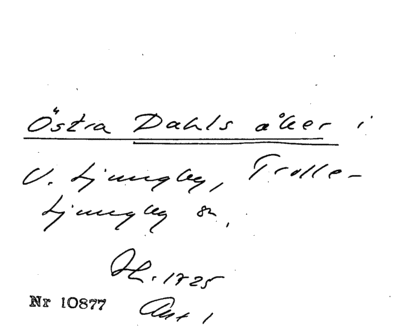 Östra Dahls åker i
V. Ljungby, Trolle-
Ljungby sn.
Hh. 1725
Nr 10877
Akt 1